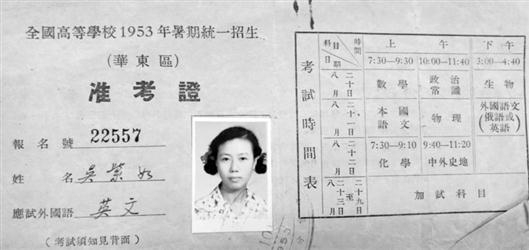 全國高等學校1953年暑期統一招生
(華東區)
准考證
報名號 22557
姓名 吳
應試外國語 英文
(考試須知見背面)
考試時間表
科目 日期 上午 下午
7:30—9:30 10:00—11:40 3:00—4:40
八月二十日 數學 政治常識 生物
八月二十一日 本國語文 物理 外國語文(俄語或英語)
7:30—9:10 9:40—11:20
八月二十二日 化學 中外史地
八月二十三日至二十九日 加試科目